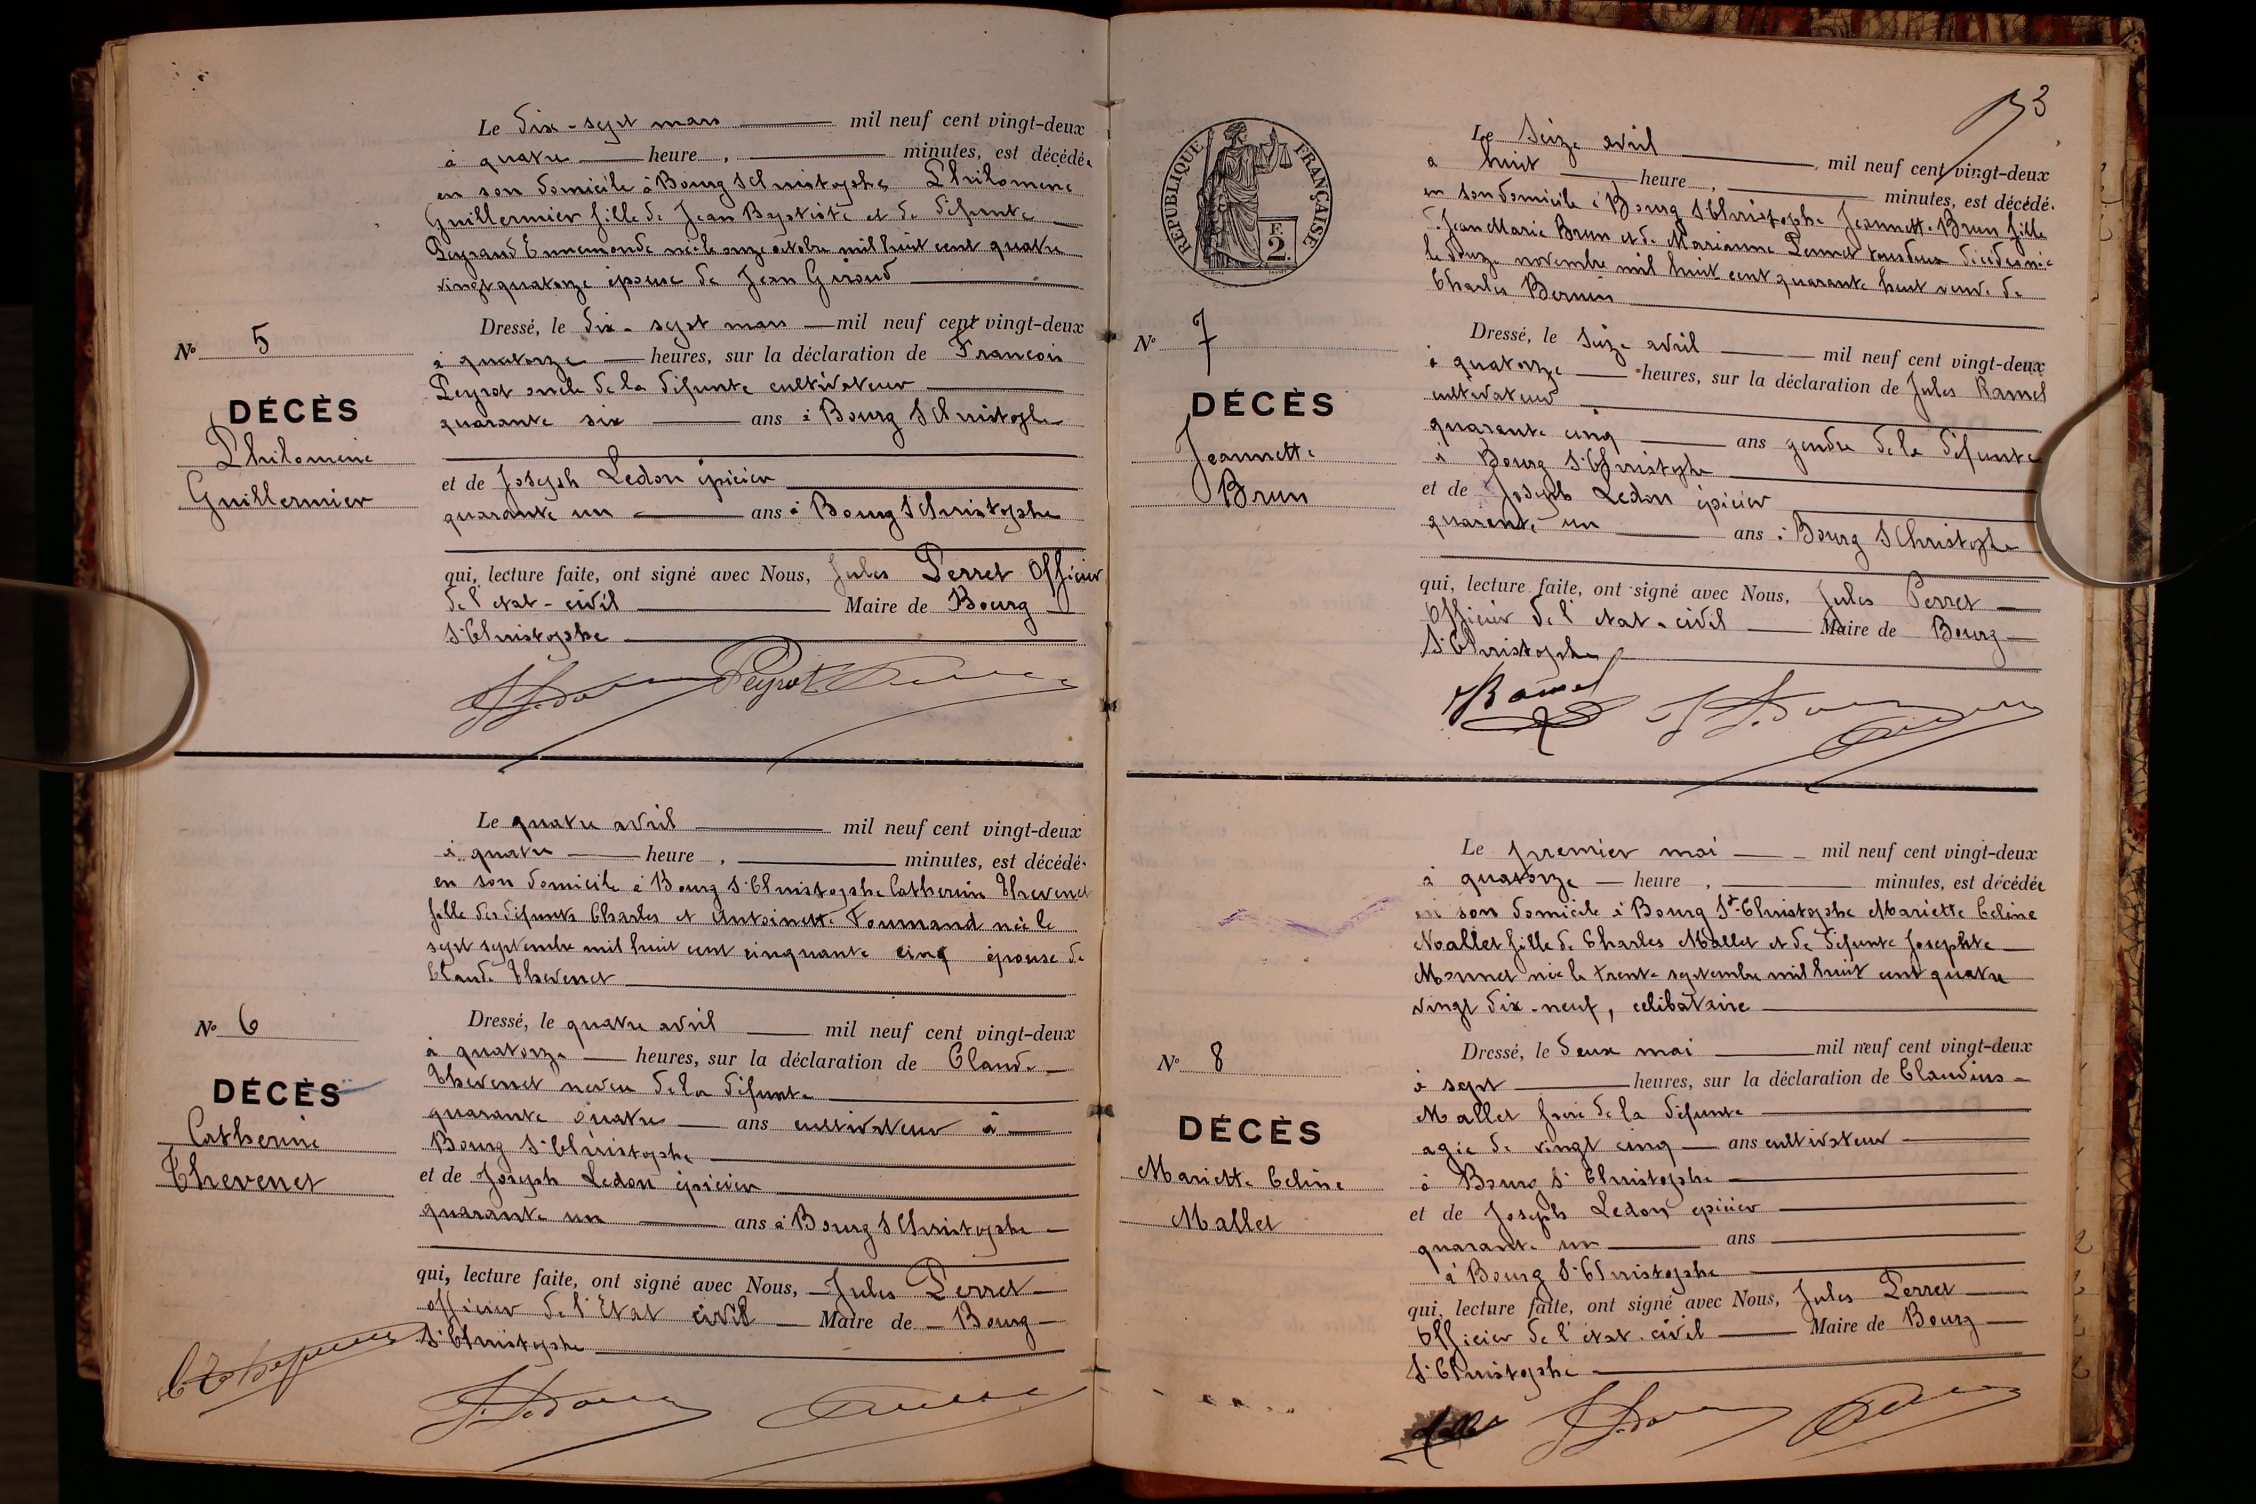 Le dix-sept mars mil neuf cent vingt-deux
à quatre heure, minutes, est décédée
en son domicile à Bourg St Christophe Philomène
Guillermier fille de Jean Baptiste et de défunte
Peyraud Ennemonde née le onze octobre mil huit cent quatre
vingt quatorze épouse de Jean Giraud
Dressé, le dix-sept mars mil neuf cent vingt-deux
à quatorze heures, sur la déclaration de François
Peyrot oncle de la défunte cultivateur
quarante six ans à Bourg St Christophe
et de Joseph Ledon épicier
quarante un ans à Bourg St Christophe
qui, lecture faite, ont signé avec Nous, Jules Perret Officier
de l'état-civil Maire de Bourg
St Christophe
Peyrot
No 5
DÉCÈS
Philomène
Guillermier
Le quatre avril mil neuf cent vingt-deux
à quatre heure, minutes, est décédée
en son domicile à Bourg St Christophe Catherine Thevenet
fille des défunts Charles et Antoinette Tournand née le
sept septembre mil huit cent cinquante cinq épouse de
Claude Thevenet
Dressé, le quatre avril mil neuf cent vingt-deux
à quatorze heures, sur la déclaration de Claude
Thevenet neveu de la défunte
quarante quatre ans cultivateur à
Bourg St Christophe
et de Joseph Ledon épicier
quarante un ans à Bourg St Christophe
qui, lecture faite, ont signé avec Nous, Jules Perret
officier de l'Etat civil Maire de Bourg
St Christophe
No 6
DÉCÈS
Catherine
Thevenet
3
RÉPUBLIQUE FRANÇAISE
2 F.
Le seize avril mil neuf cent vingt-deux
à huit heure, minutes, est décédé.
en son domicile à Bourg St Christophe Jeannette Brun fille
de Jean Marie Brun et de Marianne Pernet tous deux décédés née
le douze novembre mil huit cent quarante huit veuve de
Charles Bernin
Dressé, le seize avril mil neuf cent vingt-deux
à quatorze heures, sur la déclaration de Jules Ramel
cultivateur
quarante cinq ans gendre de la défunte
à Bourg St Christophe
et de Joseph Ledon épicier
quarante un ans à Bourg St Christophe
qui, lecture faite, ont signé avec Nous, Jules Perret
Officier de l'état-civil Maire de Bourg
St Christophe
Ramel
No 7
DÉCÈS
Jeannette
Brun
Le premier mai mil neuf cent vingt-deux
à quatorze heure, minutes, est décédée
en son domicile à Bourg St-Christophe Mariette Celine
Mallet fille de Charles Mallet et de défunte Josephte
Monnet née le trente septembre mil huit cent quatre
vingt dix-neuf, celibataire
Dressé, le deux mai mil neuf cent vingt-deux
à sept heures, sur la déclaration de Claudius
Mallet frère de la défunte
agée de vingt cinq ans cultivateur
à Bourg St Christophe
et de Joseph Ledon epicier
quarante un ans
à Bourg St Christophe
qui, lecture faite, ont signé avec Nous, Jules Perret
Officier de l'état-civil Maire de Bourg
St Christophe
No 8
DÉCÈS
Mariette Celine
Mallet